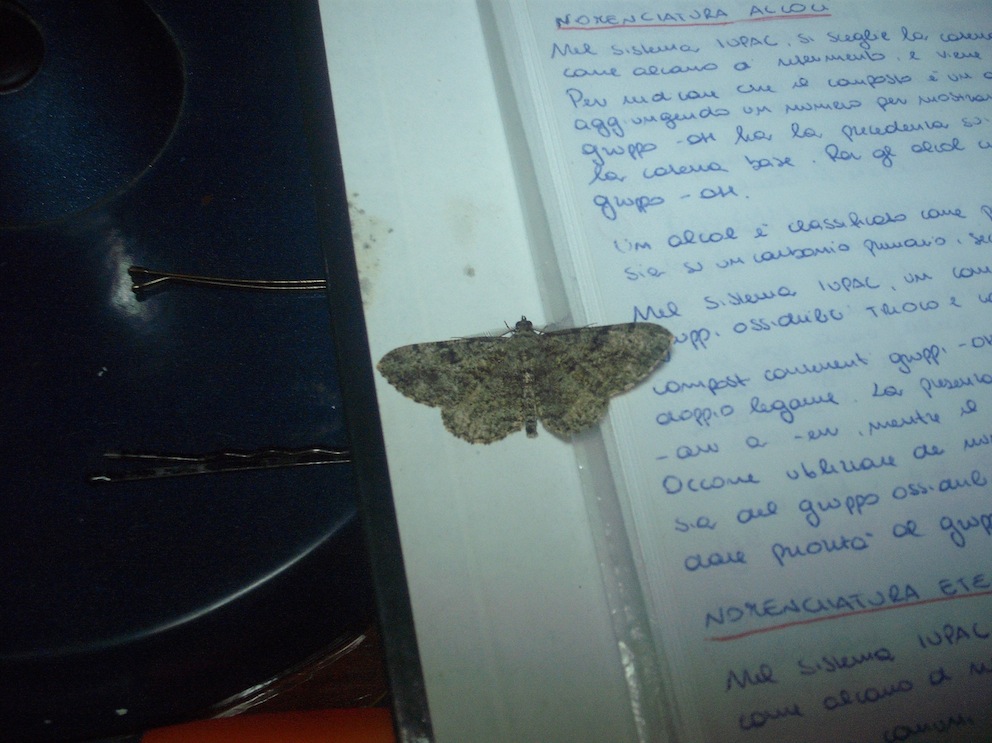 NOMENCLATURA ALCOLI
Nel sistema IUPAC, si sceglie la catena
come alcano di riferimento, e viene
Per indicare che il composto è un
aggiungendo un numero per mostrare
gruppo -OH ha la precedenza su
la catena base. Per gli alcol
gruppo -OH.
Un alcol è classificato come
sia su un carbonio primario, sec
Nel sistema IUPAC, un com
gruppi ossidrili TRIOLO e
composti contenenti gruppi -OH
doppio legame. La presenza
-an a -en, mentre il
Occorre utilizzare dei num
sia del gruppo ossidrile
dare priorità al grup
NOMENCLATURA ETE
Nel sistema IUPAC
come alcano di
comuni,